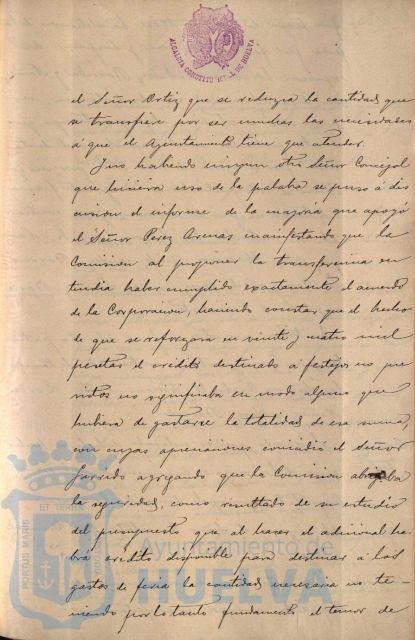 ALCALDIA CONSTITUCIONAL DE HUELVA
el Señor Ortiz que se reduzca la cantidad que
se transfiere por ser muchas las necesidades
á que el Ayuntamiento tiene que atender.
Y no habiendo ningun otro Señor Concejal
que hiciera uso de la palabra se puso á dis
cusion el informe de la mayoria que apoyó
el Señor Perez Arenas manifestando que la
Comision al proponer la transferencia en
tendia haber cumplido exactamente el acuerdo
de la Corporacion, haciendo constar que el hecho
de que se reforzara en veinte y cuatro mil
pesetas el credito destinado á festejos no pre
vistos no significaba en modo alguno que
hubiera de gastarse la totalidad de esa suma,
con cuyas apreciaciones coincidió el Señor
Garrido agregando que la Comision abrigaba
la seguridad, como resultado de su estudio
del presupuesto que al hacer el adicional ha
brá credito disponible para destinar á los
gastos de feria la cantidad necesaria no te-
niendo por lo tanto fundamento el temor de
PORTUS MARIS
ET TERRAE
Ayuntamiento de
HUELVA